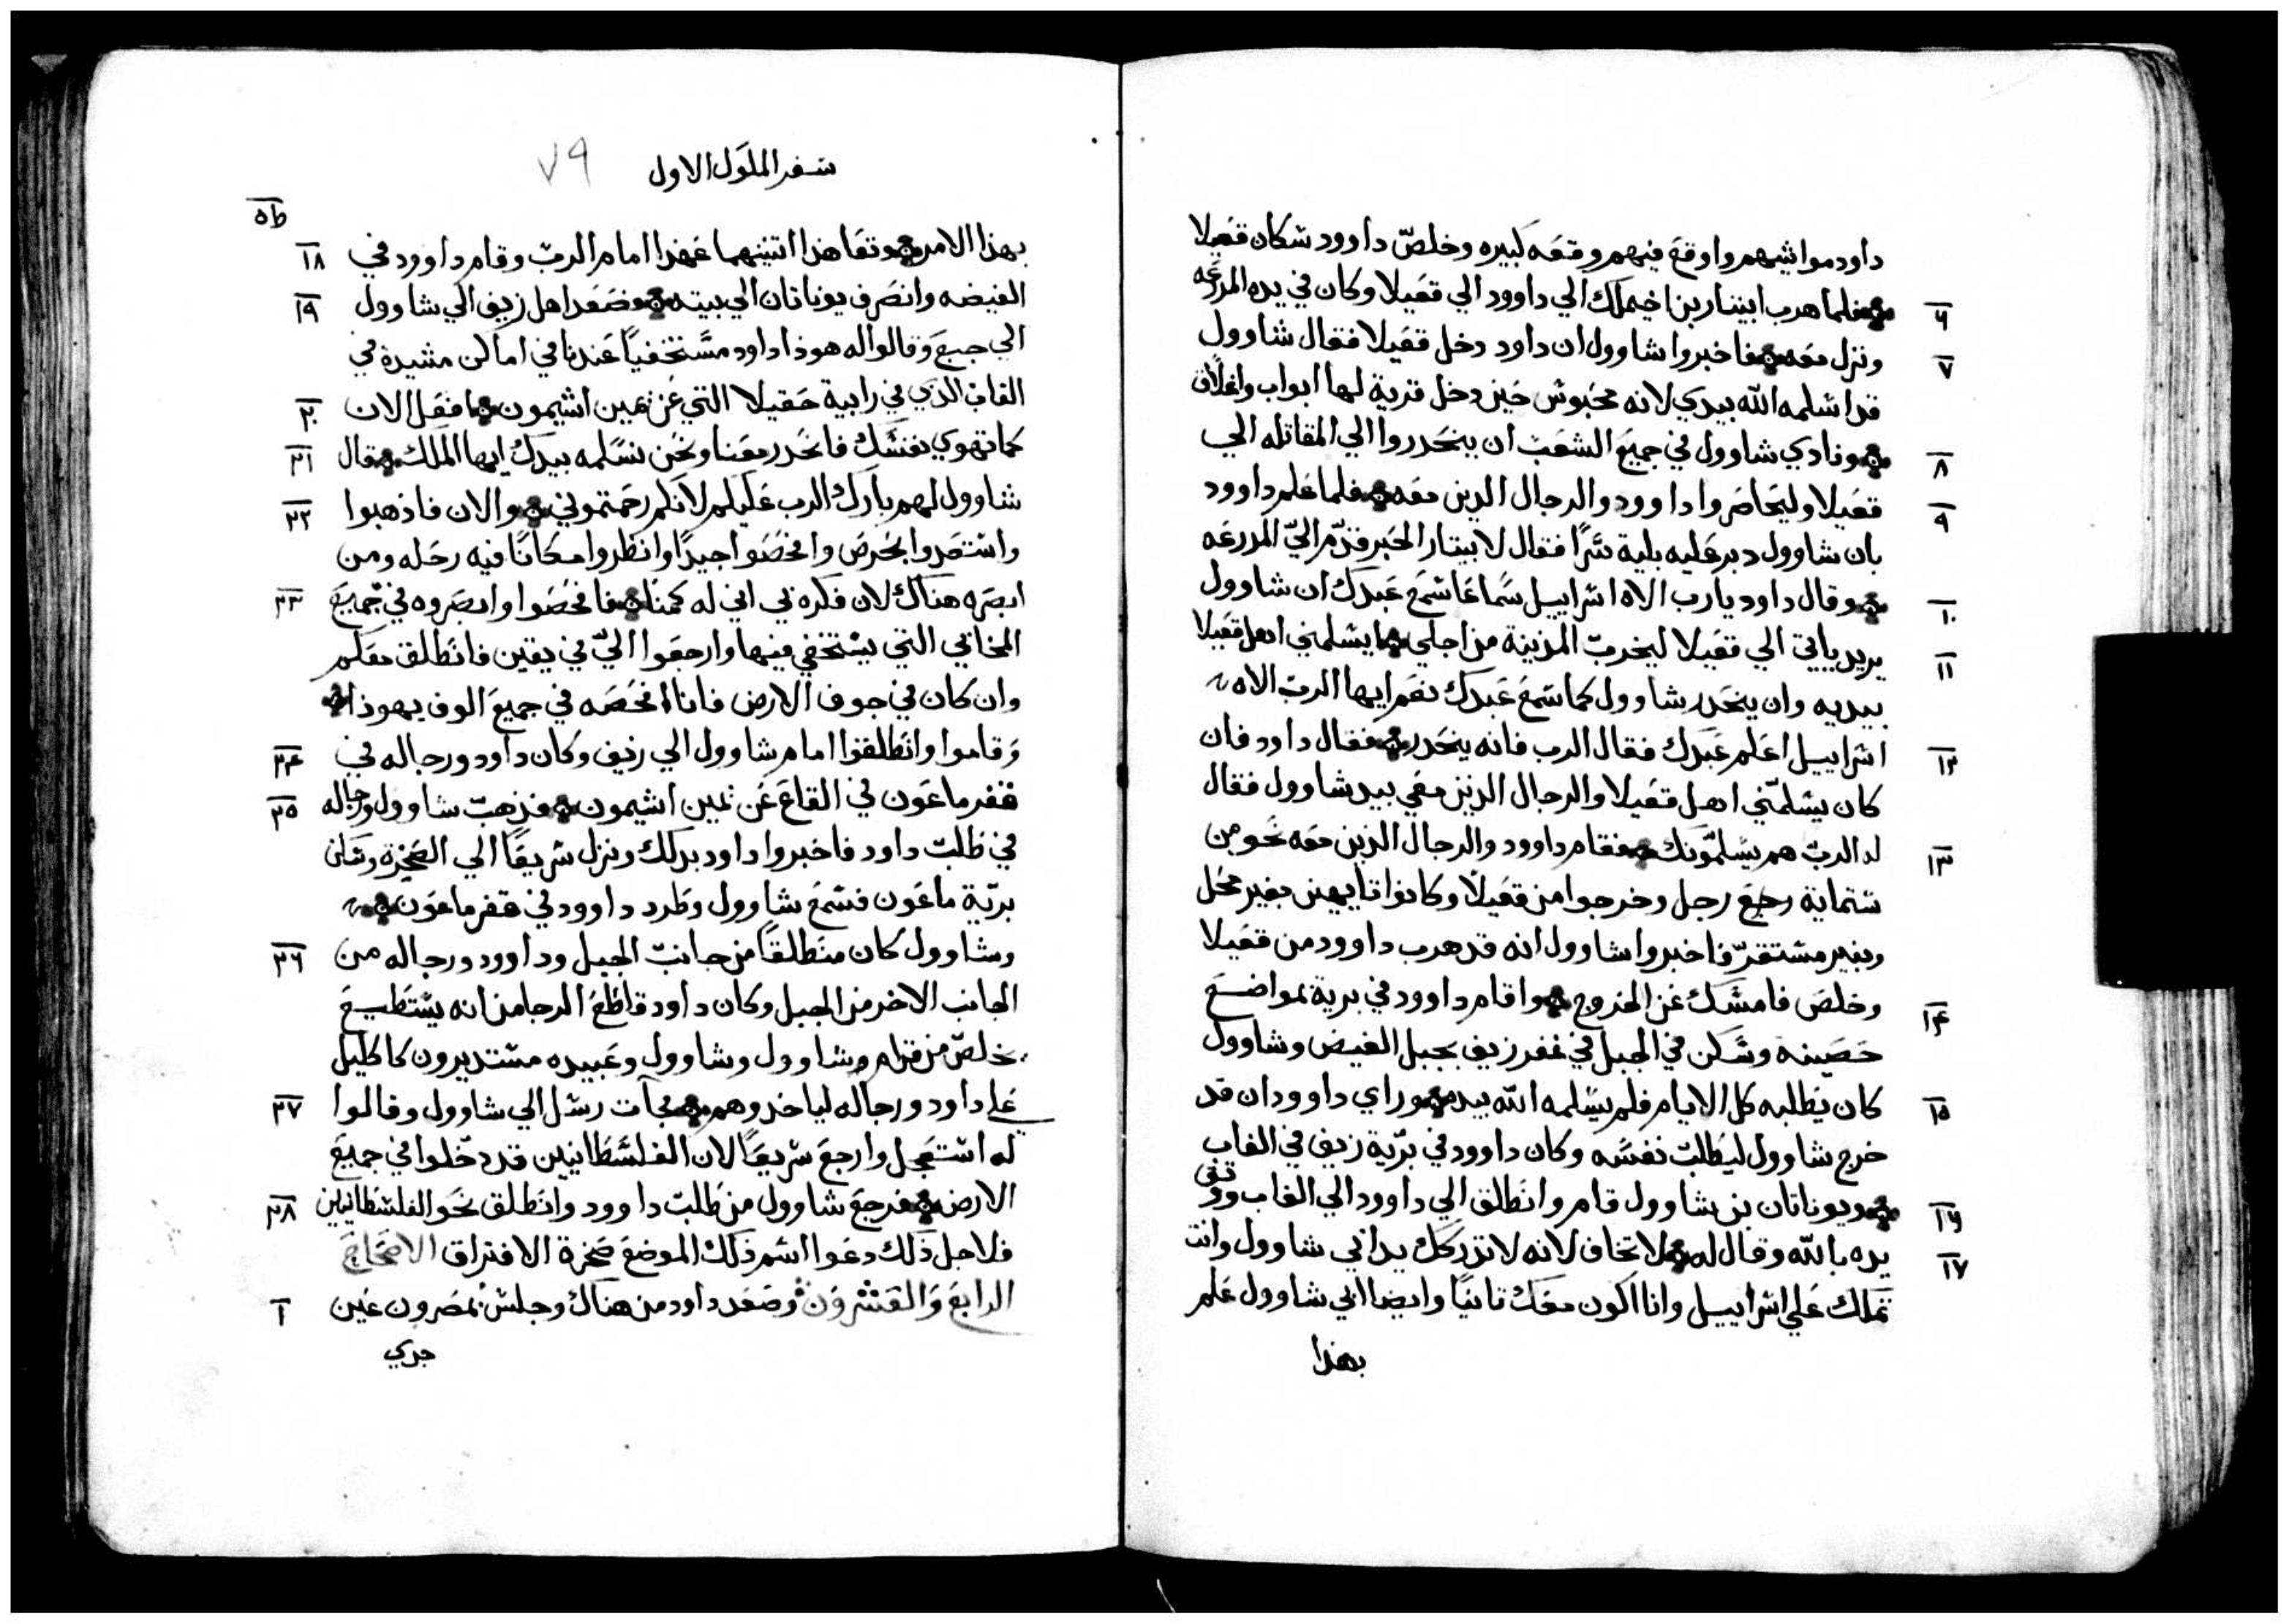 داود مواشيهم واوقع فيهم وقعه كبيره وخلص داوود سكان قعيلا
٦ فلما هرب ابيتار بن اخيملك الي داوود الي قعيلا وكان في يده المدرعه
٧ ونزل معه فاخبروا شاوول ان داود دخل قعيلا فقال شاوول
قد اسلمه الله بيدي لانه محبوس حين دخل قرية لها ابواب واغلاق
٨ ونادي شاوول في جميع الشعب ان ينحدروا الي المقاتله الي
٩ قعيلا وليحاصروا داوود والرجال الدين معه فلما علم داوود
بان شاوول دبر عليه بلية سرًا فقال لابيتار الحبر قدّم اليّ المدرعه
١٠ وقال داود يارب الاه اسراييل سماعًا سمع عبدك ان شاوول
١١ يريد ياتي الي قعيلا ليخرب المدينة من اجلي ايسلمني اهل قعيلا
بيديه وان ينحدر شاوول كما سمع عبدك نعم ايها الرب الاه
١٢ اسراييل اعلم عبدك فقال الرب فانه ينحدر فقال داود فان
كان يسلمني اهل قعيلا والرجال الذين معي بيد شاوول فقال
١٣ له الرب هم يسلمونك فقام داوود والرجال الذين معه نحو من
ستماية رجل وخرجوا من قعيلا وكانوا تايهين بغير محل
وبغير مستقرّ فاخبروا شاوول انه قد هرب داوود من قعيلا
١٤ وخلص فامسك عن الخروج واقام داوود في برية بمواضع
حصينه وسكن في الجبل في قفر زيف بجبل الغيض وشاوول
١٥ كان يطلبه كل الايام فلم يسلمه الله بيده وراي داوود ان قد
خرج شاوول ليطلب نفسه وكان داوود في بريّة زيف في الغاب
١٦ ويوناتان بن شاوول قام وانطلق الي داوود الي الغاب وقوي
١٧ يده بالله وقال له لا تخاف لانه لا تدركك يد ابي شاوول وانت
تملك علي اسراييل وانا اكون معك تانيًا وايضا ابي شاوول علم
بهذا
سفر الملوك الاول ٧٩
١٨ بهذا الامر وتعاهدا اتنينهما عهدا امام الرب وقام داوود في
١٩ الغيضه وانصرف يوناتان الي بيته فصعد اهل زيف الي شاوول
الي جبع وقالوا له هوذا داود مستخفيًا عندنا في اماكن مشيدة في
٢٠ الغاب الذي في رابية حقيلا التي عن يمين اشيمون فافعل الان
٢١ كما تهوي نفسك فانحدر معنا ونحن نسلمه بيدك ايها الملك فقال
٢٢ شاوول لهم بارك الرب عليكم لانكم رحمتموني والان فاذهبوا
واستعدوا بحرص وافحصوا جيدًا وانظروا مكانًا فيه رحله ومن
٢٣ ابصره هناك لان فكره بي اني له كمنا فافحصوا وابصروه في جميع
المخابي التي يستخفي فيها وارجعوا اليّ في يقين فانطلق معكم
وان كان في جوف الارض فانا افحصه في جميع الوف يهوذا
٢٤ وقاموا وانطلقوا امام شاوول الي زيف وكان داود ورجاله في
٢٥ قفر ماعون في القاع عن يمين اشيمون فذهب شاوول ورجاله
في طلب داود فاخبروا داود بدلك ونزل سريعًا الي الصخرة وسكن
بريّة ماعون فسمع شاوول وطرد داوود في قفر ماعون
٢٦ وشاوول كان منطلقًا من جانب الجبل وداوود ورجاله من
الجانب الاخر من الجبل وكان داود قاطع الرجا من انه يستطيع
يخلص من قدام وشاوول وعبيده مستديرون كاكليل
٢٧ علي داود ورجاله لياخدوهم فجآت رسل الي شاوول وقالوا
له استعجل وارجع سريعًا لان الفلسطانيين قد دخلوا في جميع
٢٨ الارض فرجع شاوول من طلب داوود وانطلق نحو الفلسطانيين
فلاجل ذلك دعوا اسم ذلك الموضع صخرة الافتراق الاصحاح
١ الرابع والعشرون وصعد داود من هناك وجلس بمصرون عين
جدي